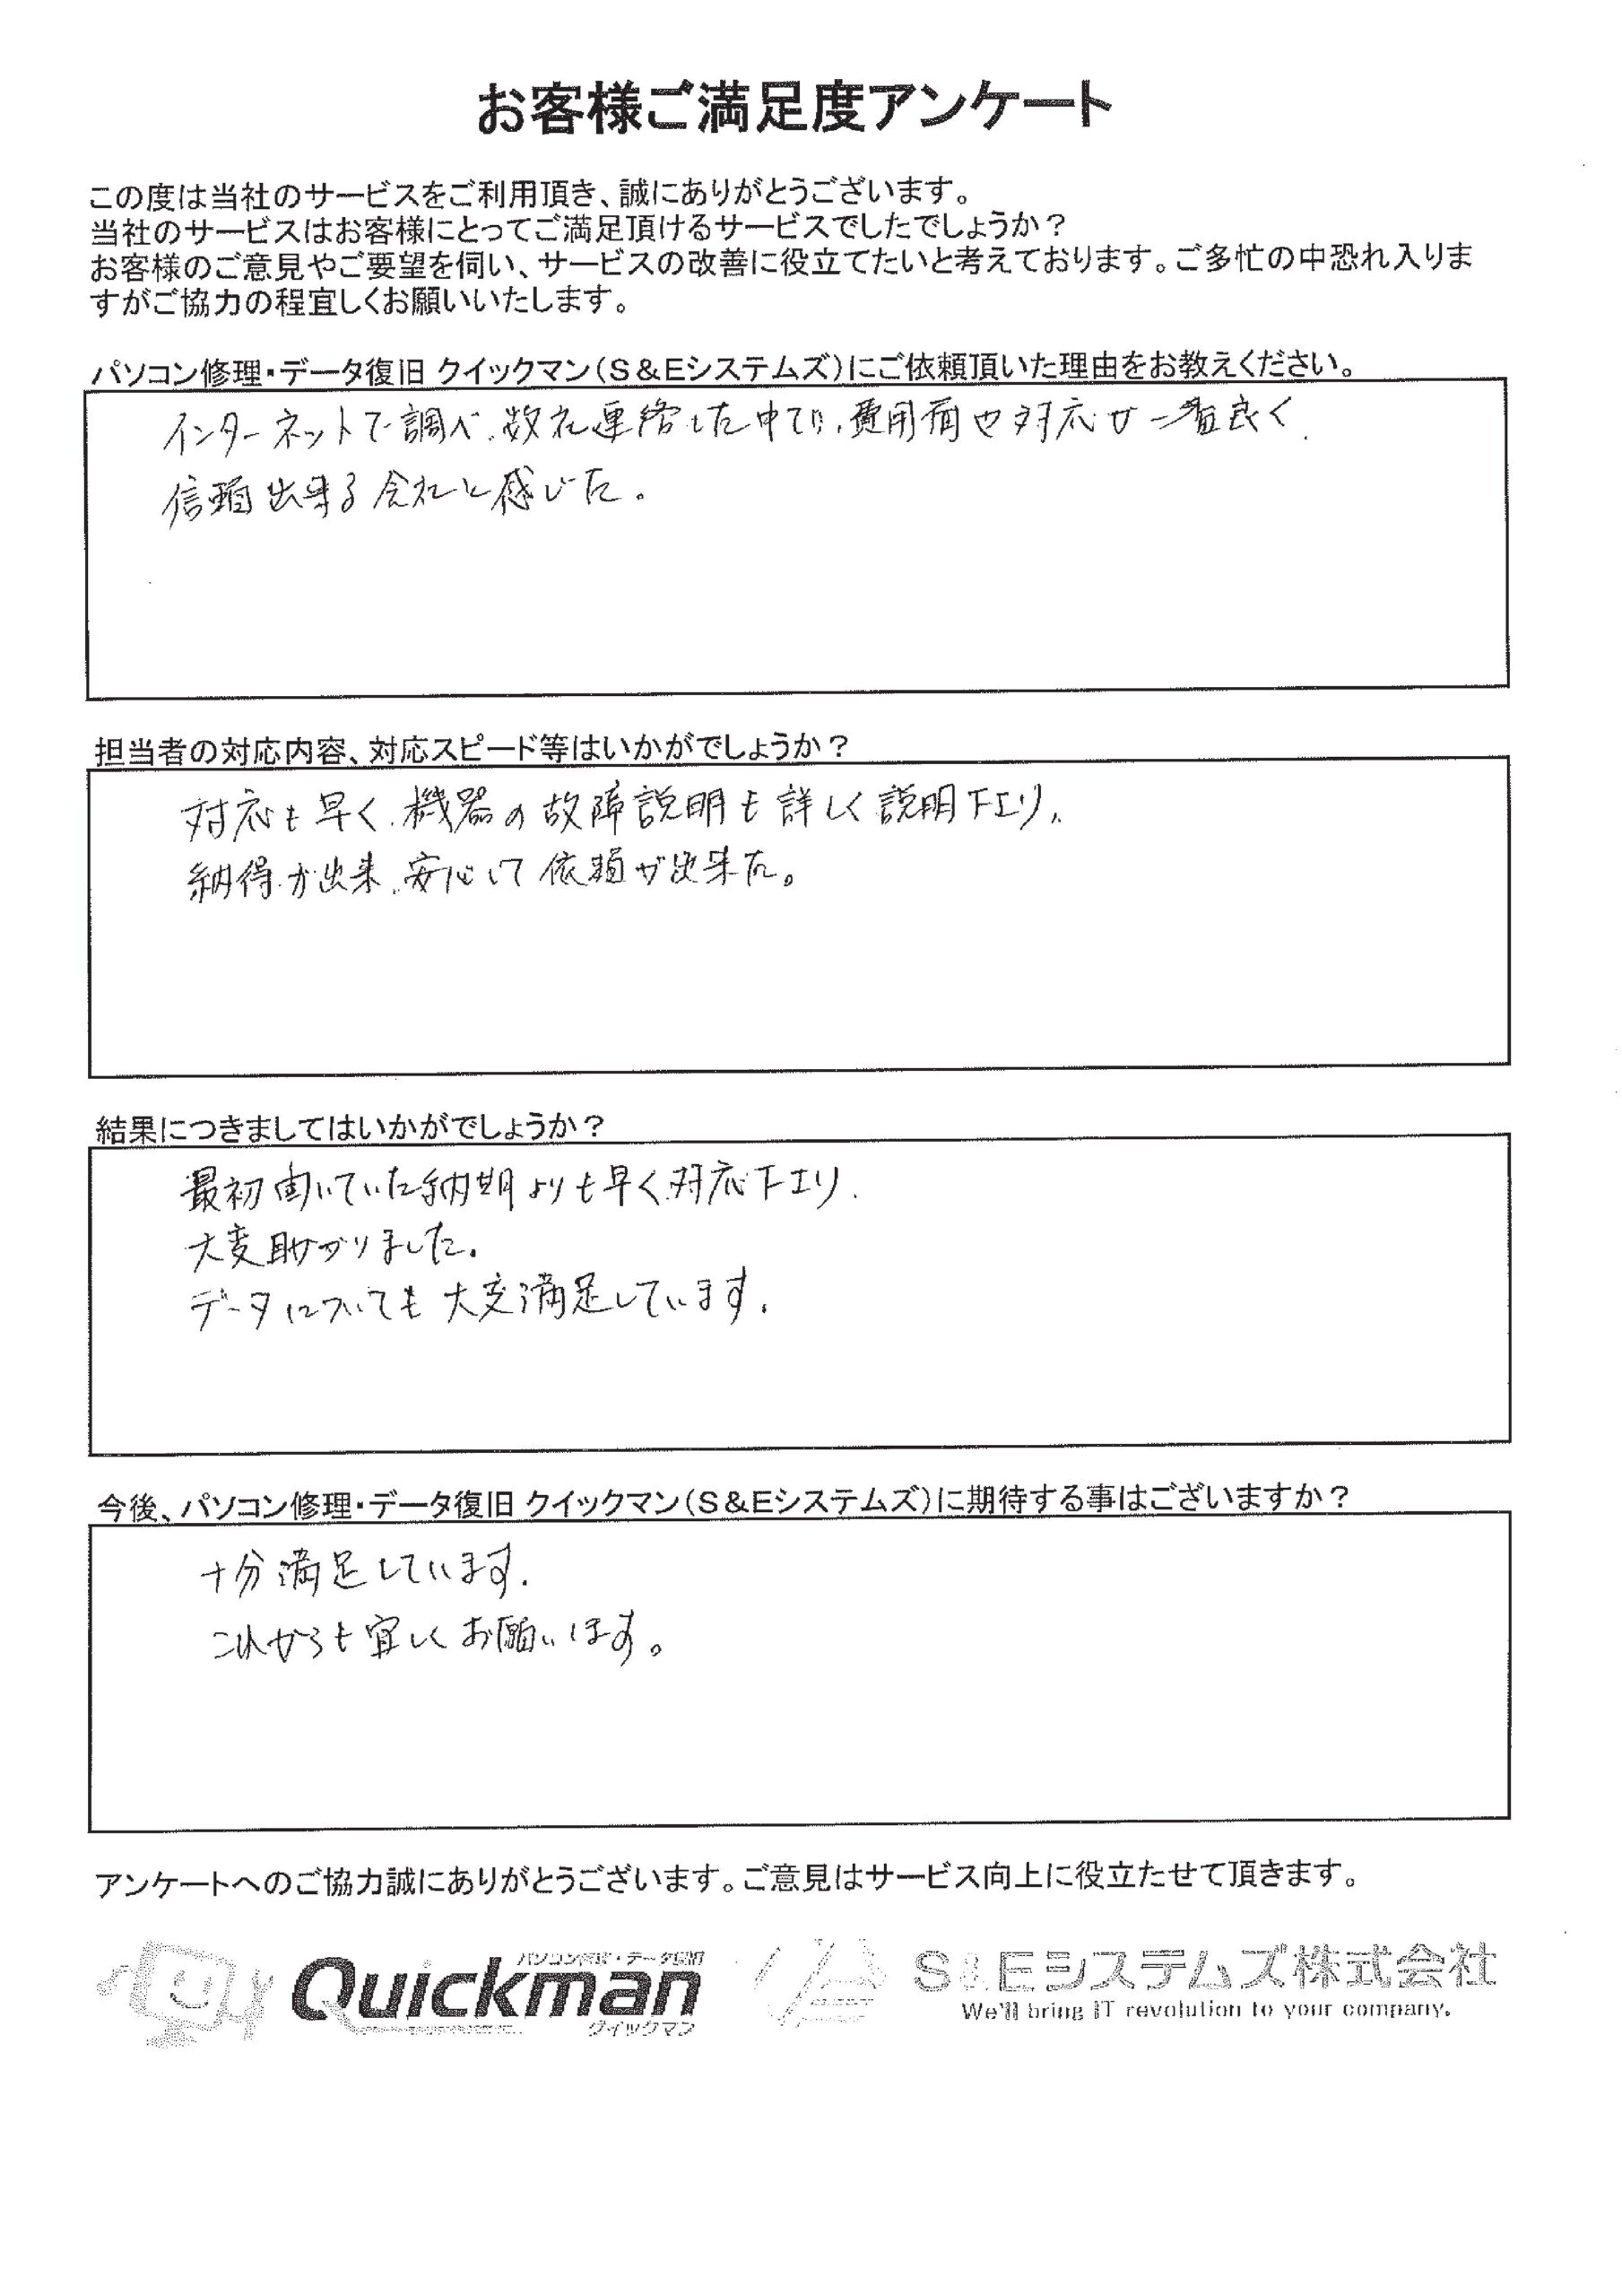 お客様ご満足度アンケート
この度は当社のサービスをご利用頂き、誠にありがとうございます。
当社のサービスはお客様にとってご満足頂けるサービスでしたでしょうか?
お客様のご意見やご要望を伺い、サービスの改善に役立てたいと考えております。ご多忙の中恐れ入りま
すがご協力の程宜しくお願いいたします。
パソコン修理・データ復旧 クイックマン(S&Eシステムズ)にご依頼頂いた理由をお教えください。
インターネットで調べ、数社連絡した中で、費用面や対応が一番良く、
信頼出来る会社と感じた。
担当者の対応内容、対応スピード等はいかがでしょうか?
対応も早く、機器の故障説明も詳しく説明下さり、
納得が出来、安心して依頼が出来た。
結果につきましてはいかがでしょうか?
最初聞いていた納期よりも早く対応下さり、
大変助かりました。
データについても大変満足しています。
今後、パソコン修理・データ復旧 クイックマン(S&Eシステムズ)に期待する事はございますか?
十分満足しています。
これからも宜しくお願いします。
アンケートへのご協力誠にありがとうございます。ご意見はサービス向上に役立たせて頂きます。
パソコン修理・データ復旧
Quickman
クイックマン
S&Eシステムズ株式会社
We'll bring IT revolution to your company.